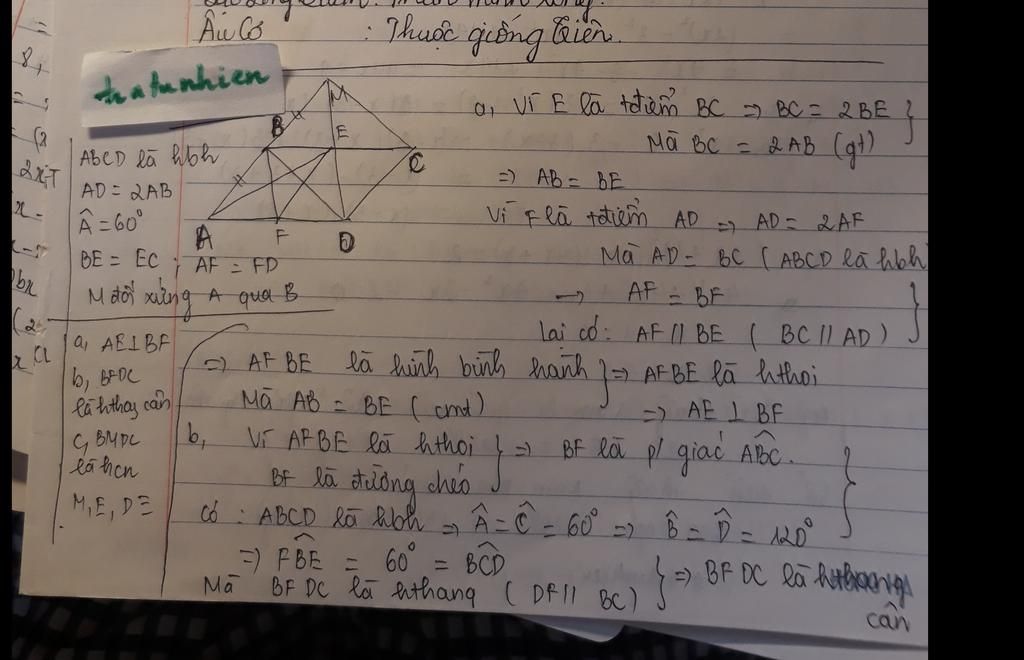 Âu Cơ : Thuộc giống Tiên.
hatunhien
M
B
E
C
A
F
D
ABCD là hbh
AD = 2AB
Â = 60°
BE = EC ; AF = FD
M đối xứng A qua B
a, AE⊥BF
b, BFDC
là hthag cân
c, BMDC
là hcn
M, E, D ≡
a, Vì E là tđiểm BC => BC = 2BE
Mà BC = 2AB (gt)
=> AB = BE
Vì F là tđiểm AD => AD = 2AF
Mà AD = BC (ABCD là hbh
→ AF = BF
lại có: AF // BE ( BC // AD )
=> AFBE là hình bình hành
Mà AB = BE ( cmt)
=> AFBE là hthoi
=> AE ⊥ BF
b, Vì AFBE là hthoi
BF là đường chéo
=> BF là p/ giác ABC.
Có : ABCD là hbh => Â = Ĉ = 60° => B̂ = D̂ = 120°
=> FBE = 60° = BCD
Mà BFDC là hthang ( DF // BC)
=> BFDC là hthang
cân